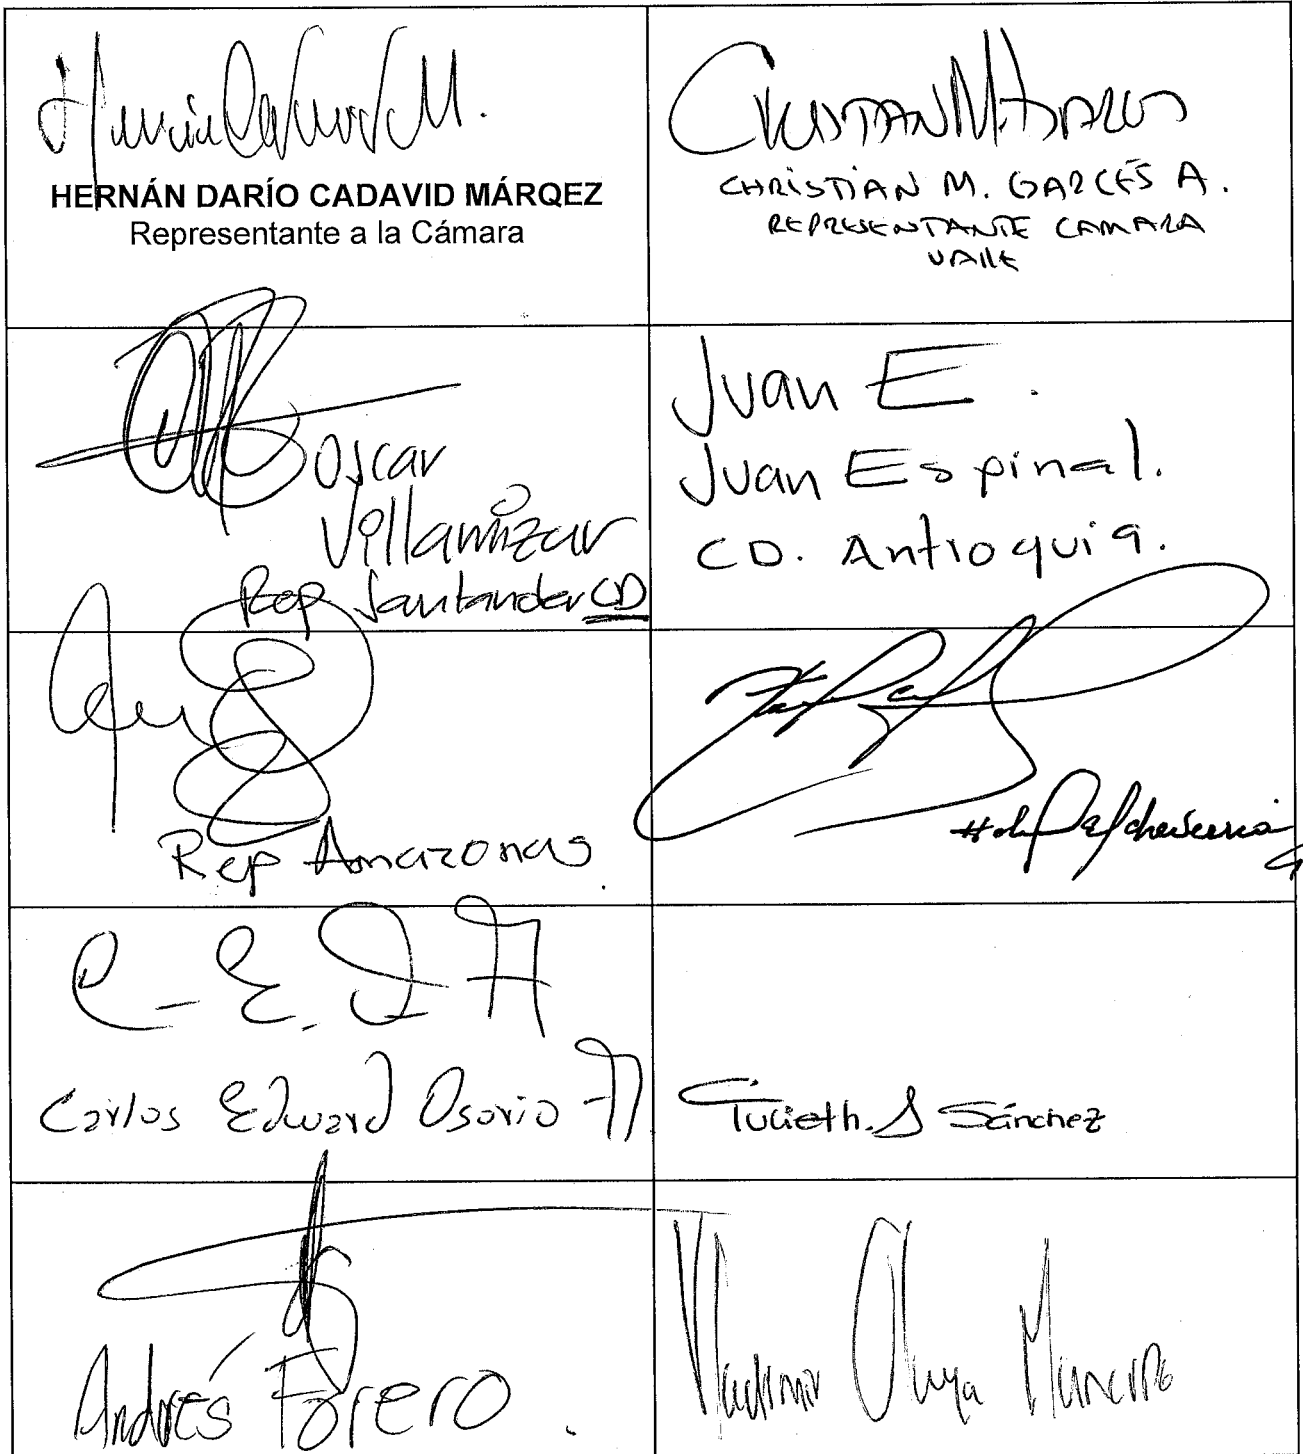 HERNÁN DARÍO CADAVID MÁRQEZ
Representante a la Cámara
CHRISTIAN M. GARCÉS A.
REPRESENTANTE CAMARA
VALLE
Oscar
Villamizar
Rep Santander CD
Juan E.
Juan Espinal.
CD. Antioquia.
Rep Amazonas
C-E. O M
Carlos Edward Osorio
Julieth. S Sánchez
Andrés Forero.
Vladimir Olaya Mancipe